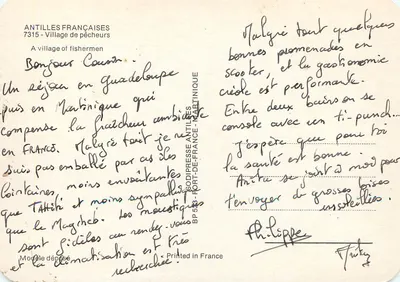 ANTILLES FRANÇAISES
7315 - Village de pêcheurs
A village of fishermen
Bonjour Cousin..
Un séjour en Guadeloupe
puis en Martinique qui
compense la fraîcheur ambiante
en FRANCE. Malgré tout je ne
suis pas emballé par ces îles
lointaires, moins envoûtantes
que TAHITI et moins sympathiques
que le Mexico. Les moustiques
sont fidèles au rendez-vous
et la climatisation est très
recherchée.
Modèle déposé
Printed in France
BP 583 - FORT-DE-FRANCE - MARTINIQUE
Malgré tout quelques
bonnes promenades en
scooter, et la gastronomie
créole est performante.
Entre deux bains on se
console avec un ti-punch...
J'espère que pour toi
la santé est bonne.
Anita se joint à moi pour
t'envoyer de grosses bises
ensoleillées.
Philippe
Anita